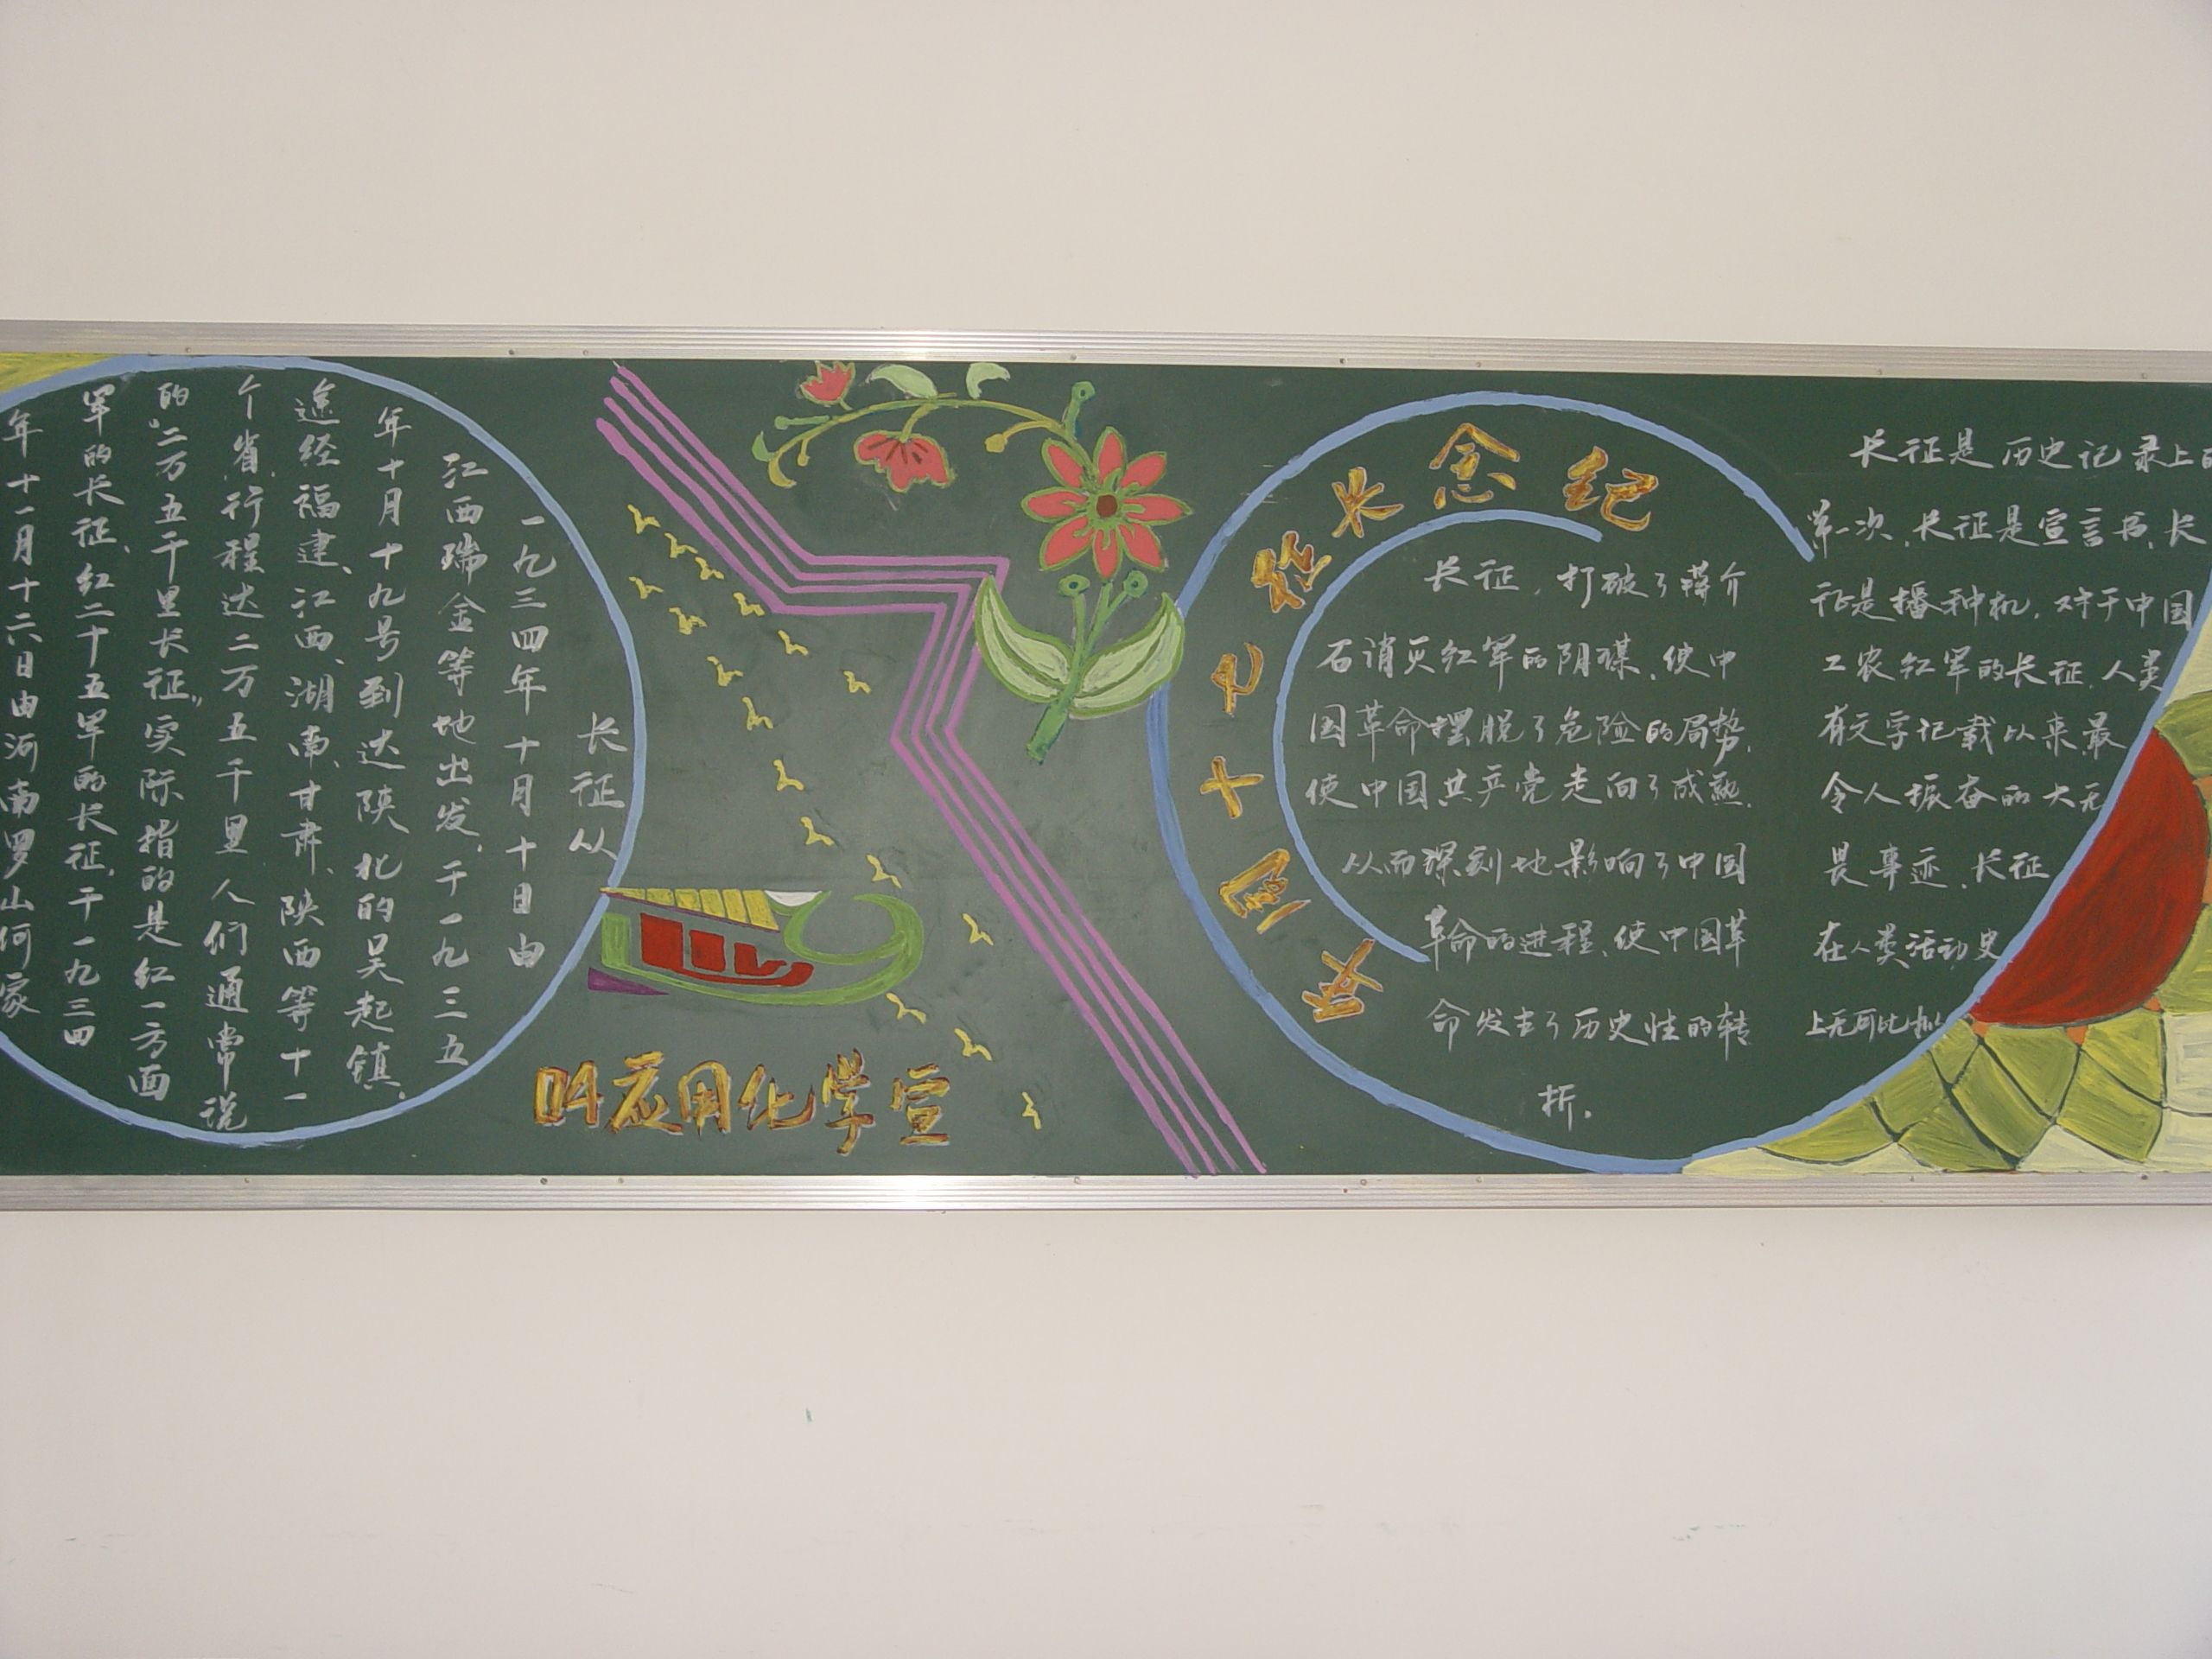 长征从
一九三四年十月十日由
江西瑞金等地出发,于一九三五
年十月十九号到达陕北的吴起镇.
途经福建、江西、湖南、甘肃、陕西等十一
个省,行程达二万五千里人们通常说
的“二万五千里长征”实际指的是红一方面
军的长征、红二十五军的长征,于一九三四
年十一月十六日由河南罗山何家
04应用化学宣
纪念长征七十周年
长征,打破了蒋介
石消灭红军的阴谋,使中
国革命摆脱了危险的局势,
使中国共产党走向了成熟.
从而深刻地影响了中国
革命的进程,使中国革
命发生了历史性的转
折.
长征是历史记录上的
第一次,长征是宣言书,长
征是播种机,对于中国
工农红军的长征,人类
有文字记载以来,最
令人振奋的大无
畏事迹,长征
在人类活动史
上无可比拟